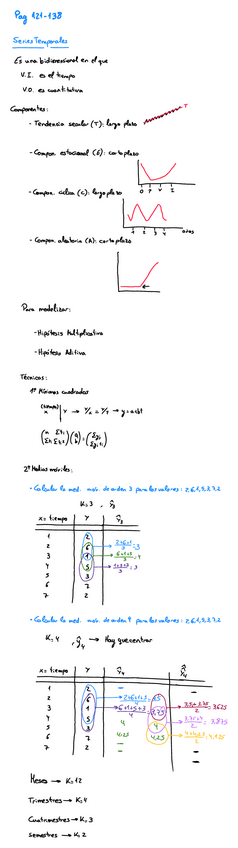 Pag 121-138
Series Temporales
Es una bidimensional en el que
V.I. es el tiempo
V.D. es cuantitativa
Componentes:
- Tendencia secular (T): largo plazo
T
- Compon. estacional (E): corto plazo
O P V I
- Compon. cíclica (C): largo plazo
1 2 3 4 años
- Compon. aleatoria (A): corto plazo
Para modelizar:
- Hipótesis Multiplicativa
- Hipótesis Aditiva
Técnicas:
1º Mínimos cuadrados
2º Medias móviles:
- Calcular la med. mov. de orden 3 para los valores: 2,6,1,5,3,7,2
K=3
x = tiempo Y
1 2
2 6
3 1
4 5
5 3
6 7
7 2
- Calcular la med. mov. de orden 4 para los valores: 2,6,1,5,3,7,2
K=4 → Hay que centrar
x = tiempo Y
1 2 –
2 6
3 1
4 5 4
5 3 4.25
6 7 –
7 2 –
Meses → K=12
Trimestres → K=4
Cuatrimestres → K=3
Semestres → K=2